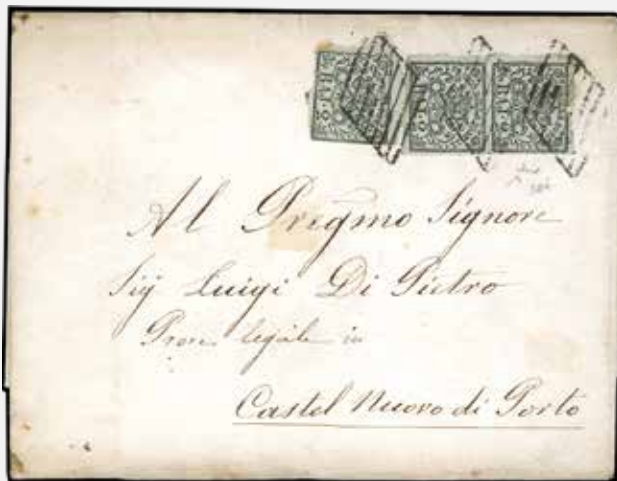 BAJ. 2 BAJ. 2 BAJ. 2
Al Pregmo Signore
Sig Luigi Di Pietro
Proc. legale in
Castel Nuovo di Porto